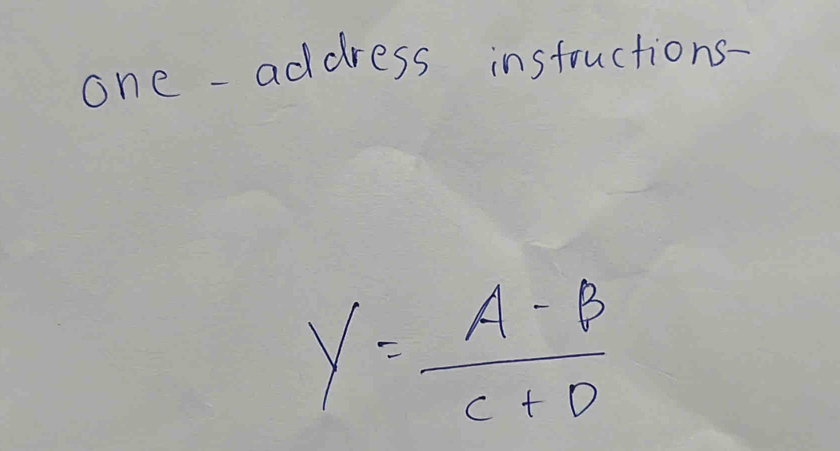 one - address instructions-
Y = A - B
C + D